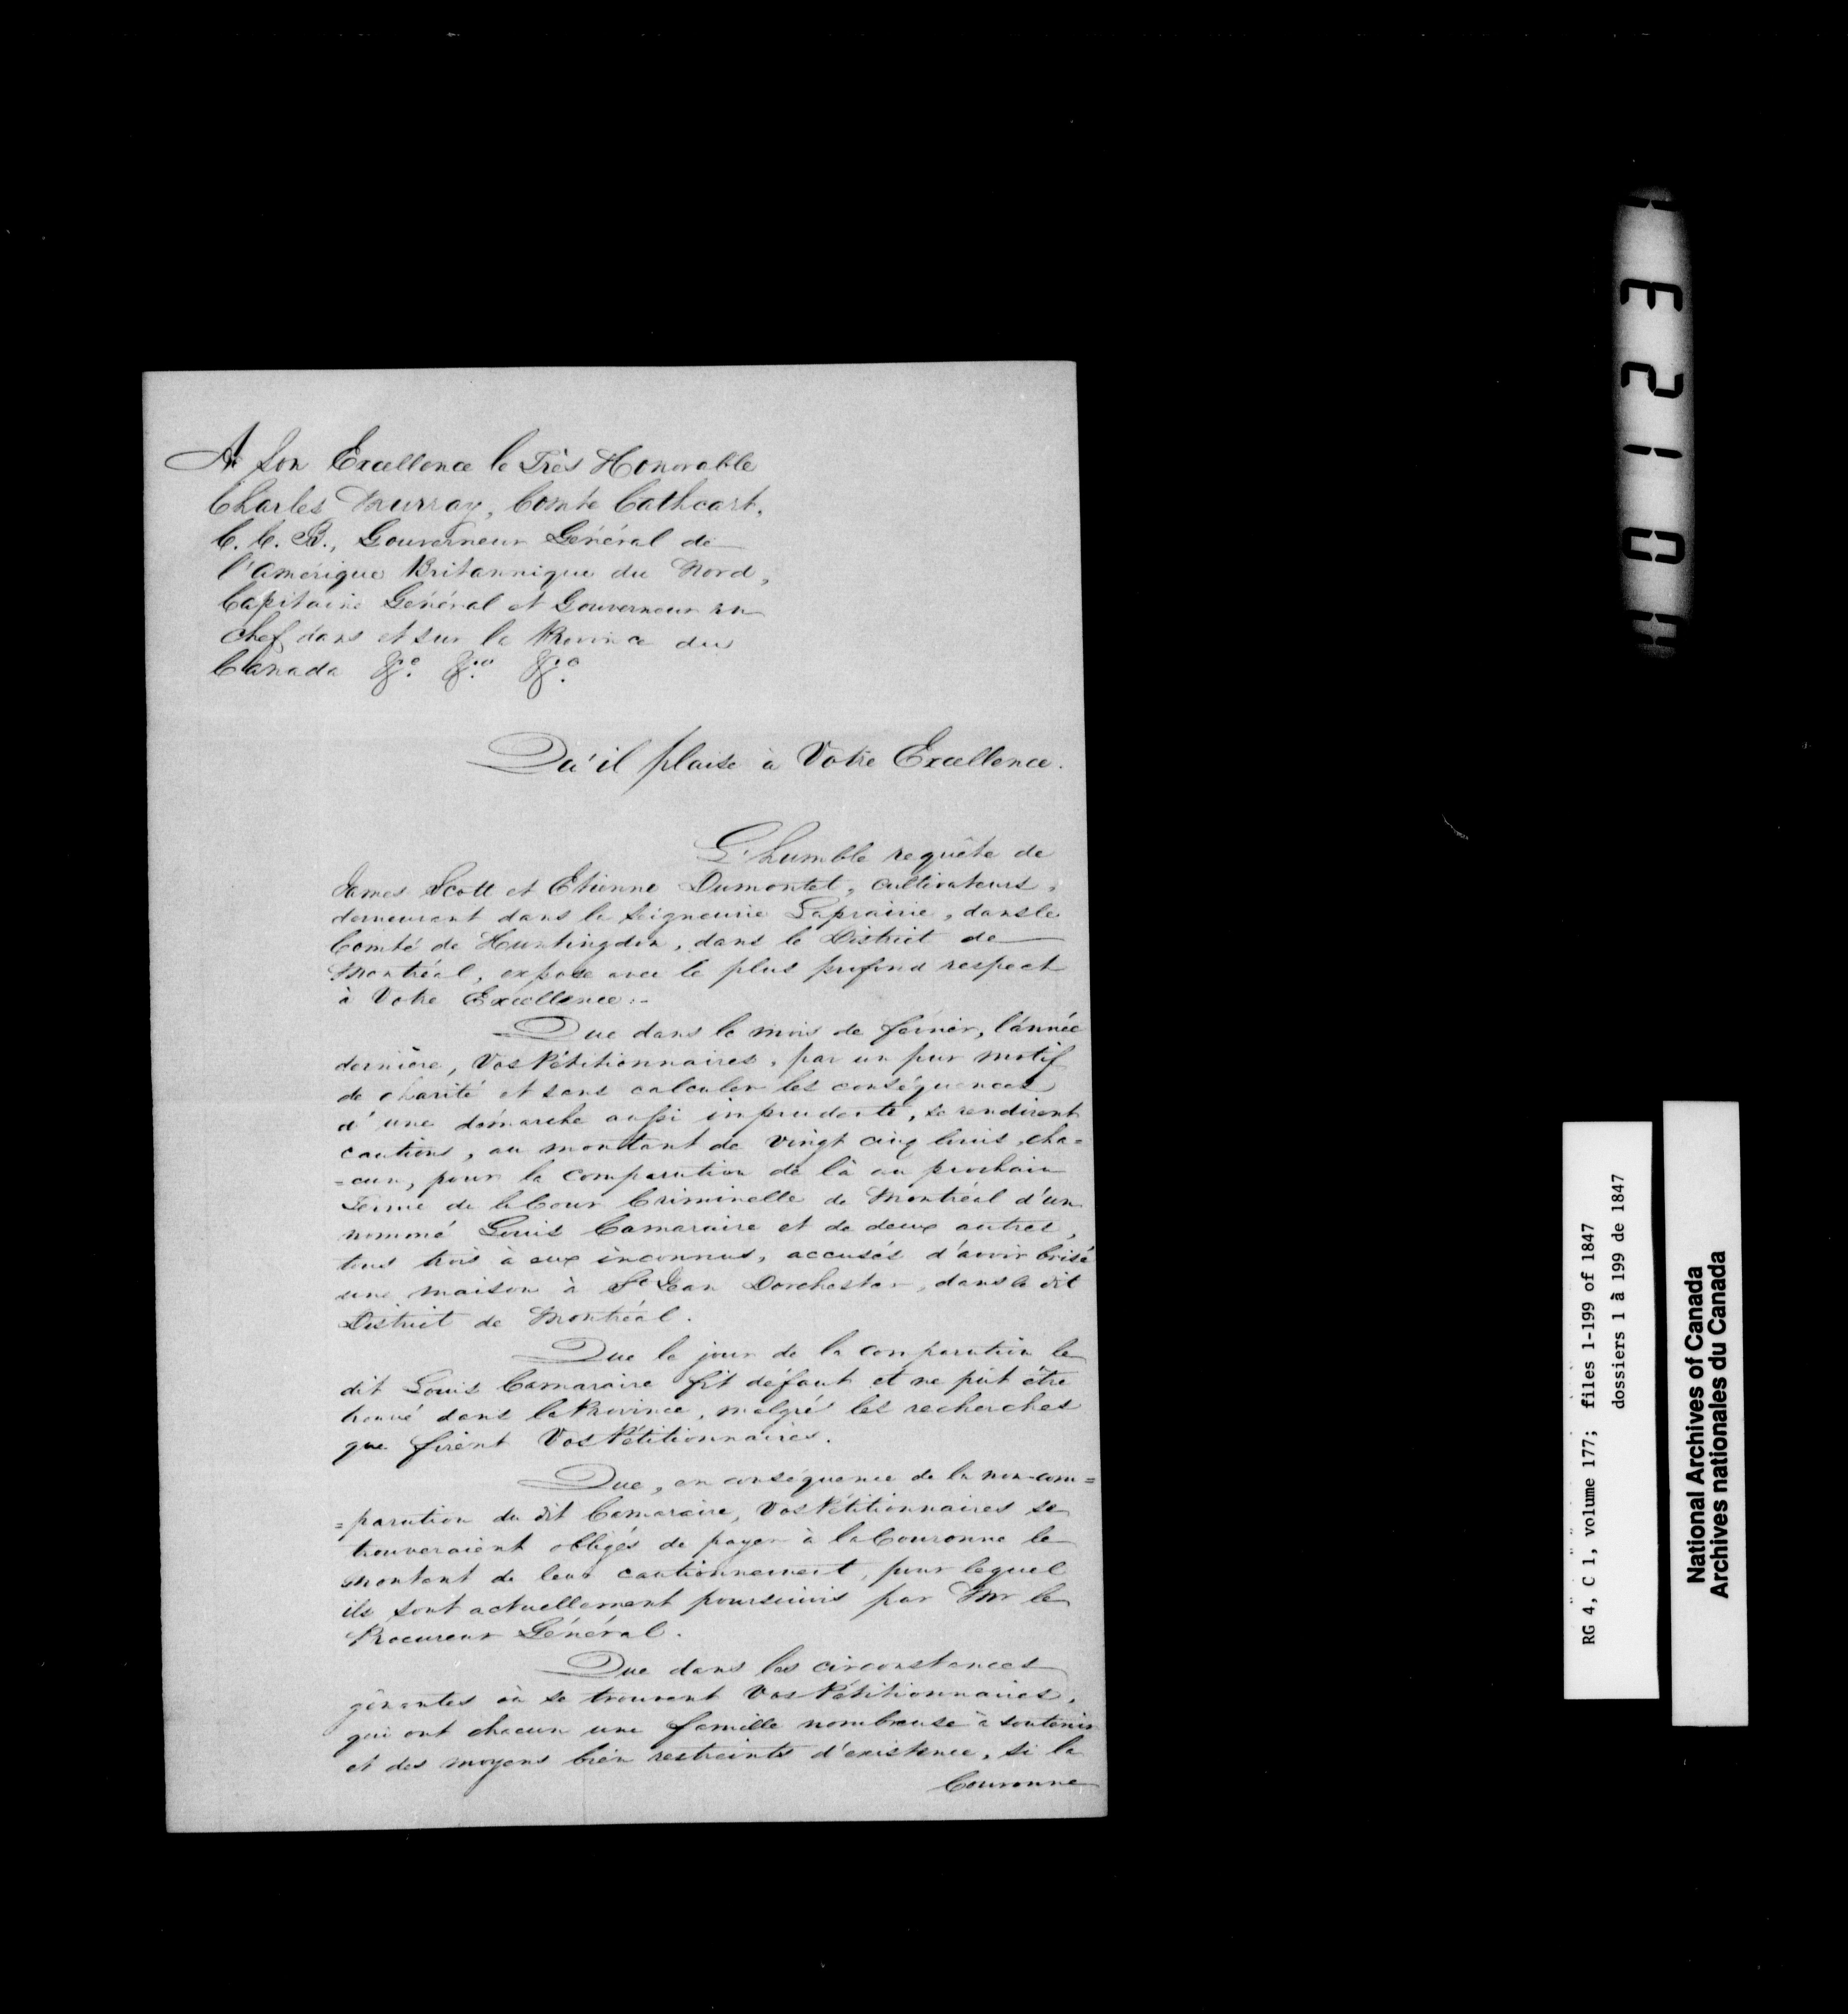 A Son Excellence le Très Honorable
Charles Murray, Comte Cathcart,
C. C. B., Gouverneur Général de
l'Amérique Britannique du Nord,
Capitaine Général et Gouverneur en
Chef dans et sur la Province du
Canada &c. &c. &c.
Qu'il plaise à Votre Excellence.
L'humble requête de
James Scott et Etienne Dumontet, cultivateurs,
demeurant dans la Seigneurie Laprairie, dans le
Comté de Huntingdon, dans le District de
Montréal, expose avec le plus profond respect
à Votre Excellence:-
Que dans le mois de février, l'année
dernière, Vos Pétitionnaires, par un pur motif
de charité et sans calculer les conséquences
d'une démarche aussi imprudente, se rendirent
cautions, au montant de vingt cinq louis cha=
=cun, pour la comparution de là au prochain
Terme de la Cour Criminelle de Montréal d'un
nommé Louis Camaraire et de deux autres,
tous trois à eux inconnus, accusés d'avoir brisé
une maison à St Jean Dorchester, dans le dit
District de Montréal.
Que le jour de la comparution le
dit Louis Camaraire fit défaut et ne pût être
trouvé dans la Province, malgré les recherches
que firent Vos Pétitionnaires.
Que, en conséquence de la non-com=
=parution du dit Camaraire, Vos Pétitionnaires se
trouveraient obligés de payer à la Couronne le
montant de leur cautionnement, pour lequel
ils sont actuellement poursuivis par Mr le
Procureur Général.
Que dans les circonstances
gênantes où se trouvent Vos Pétitionnaires,
qui ont chacun une famille nombreuse à soutenir
et des moyens bien restreints d'existence, si la
Couronne
H 0123
RG 4, C 1, volume 177; files 1-199 of 1847
dossiers 1 à 199 de 1847
National Archives of Canada
Archives nationales du Canada